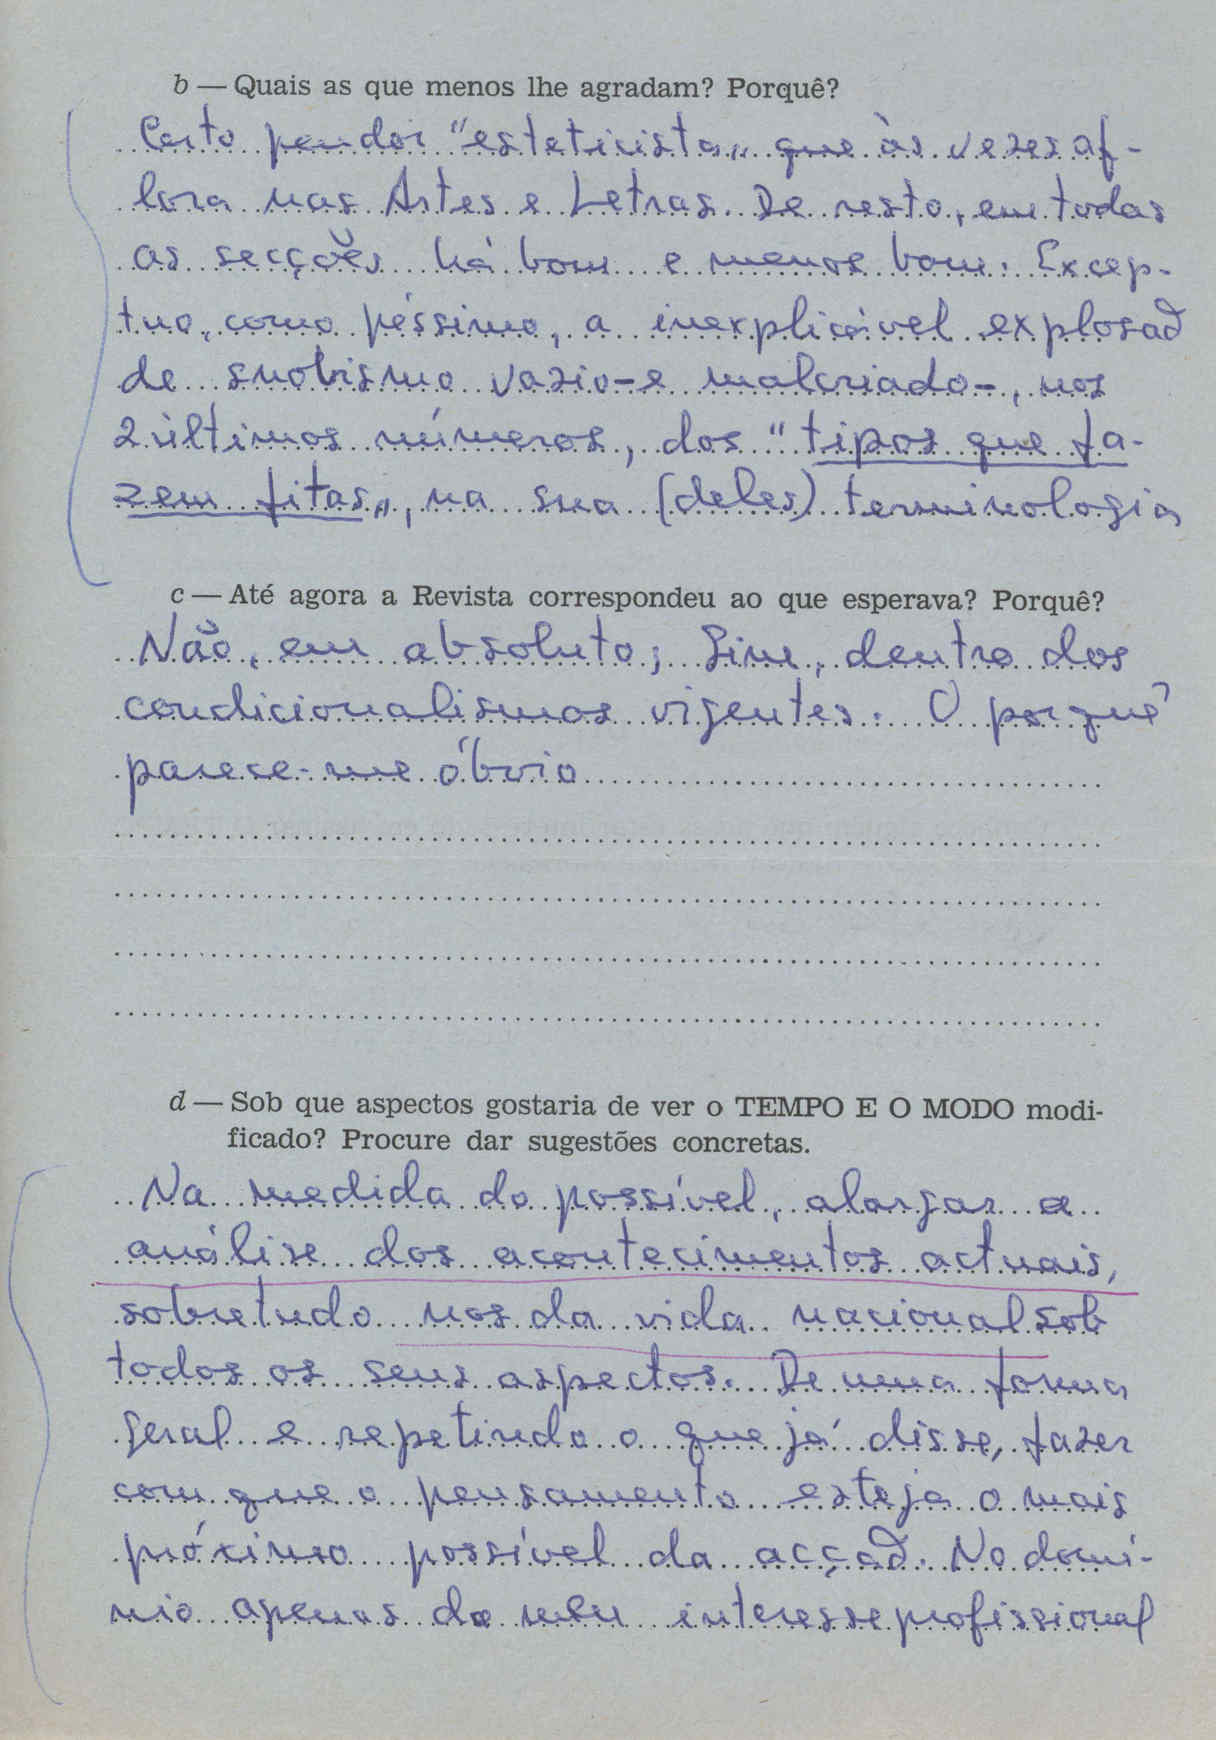 b — Quais as que menos lhe agradam? Porquê?
Certo pendor "esteticista„ que às vezes af-
lora nas Artes e Letras. De resto, em todas
as secções há bom e menos bom. Excep-
tuo, como péssimo, a inexplicável explosão
de snobismo vazio-e malcriado-, nos
2 últimos números, dos "tipos que fa-
zem fitas„, na sua (deles) terminologia
c — Até agora a Revista correspondeu ao que esperava? Porquê?
Não, em absoluto; Sim, dentro dos
condicionalismos vigentes. O porquê
parece-me óbvio
d — Sob que aspectos gostaria de ver o TEMPO E O MODO modi-
ficado? Procure dar sugestões concretas.
Na medida do possível, alargar a
análise dos acontecimentos actuais,
sobretudo nos da vida nacional sob
todos os seus aspectos. De uma forma
geral e repetindo o que já disse, fazer
com que o pensamento esteja o mais
próximo possível da acção. No domí-
nio apenas do meu interesse profissional